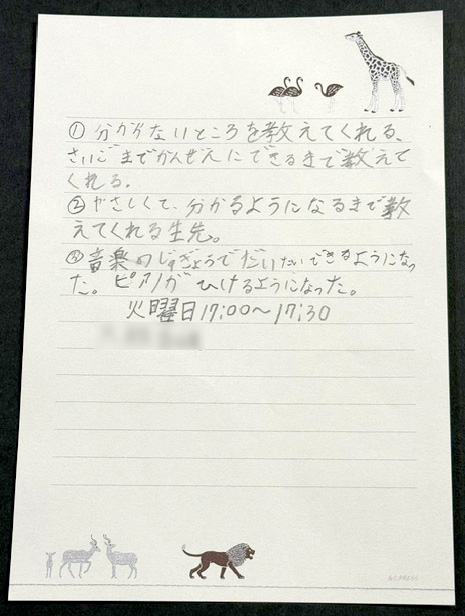 ① 分からないところを教えてくれる、
さいごまでかんぜんにできるまで教えて
くれる。
② やさしくて、分かるようになるまで教
えてくれる生先。
③ 音楽のじゅぎょうでだいたいできるようになっ
た。ピアノがひけるようになった。
火曜日17:00〜17:30